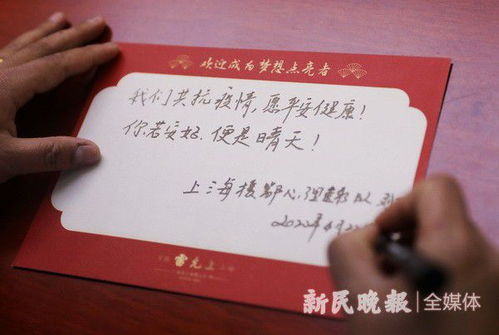 欢迎成为梦想点亮者
我们共抗疫情，愿平安健康！
你若安好，便是晴天！
上海援鄂心理医疗队
2022年4月22
雷允上
新民晚报 全媒体